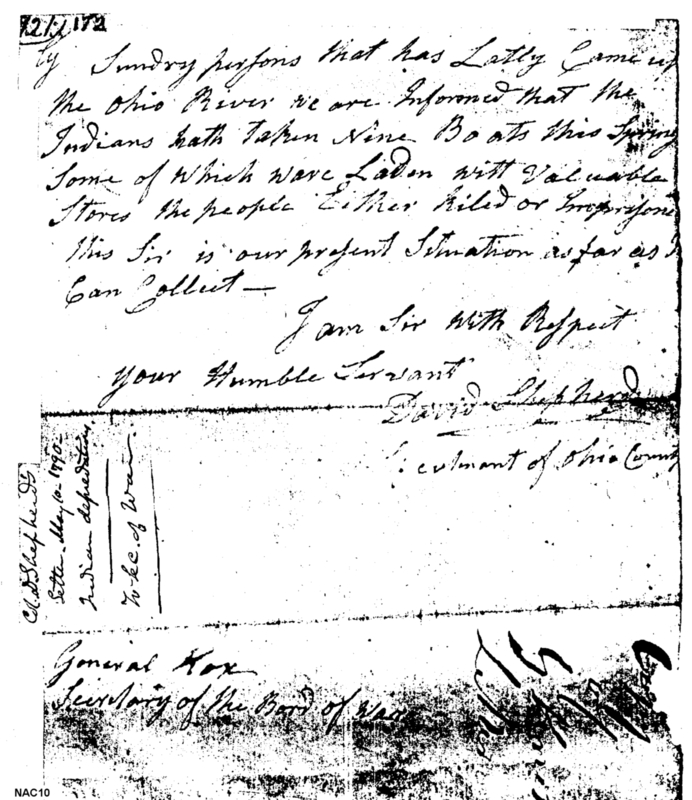 172
By Sundry persons that has Latly Came up
the Ohio River we are Informed that the
Indians hath taken Nine Boats this Spring
Some of which ware Laden with Valuable
Stores the people Either Kiled or Imprisoned
this Sir is our present Situation as far as I
Can Collect —
I am Sir With Respect
your Humble Servant
David Shepherd
Leutnant of Ohio County
Col. D Shepherd's
Letter May 10. 1790
Indian depredations.
To Sec. of War.
General Knox
Secretary of the Bord of War
NAC10